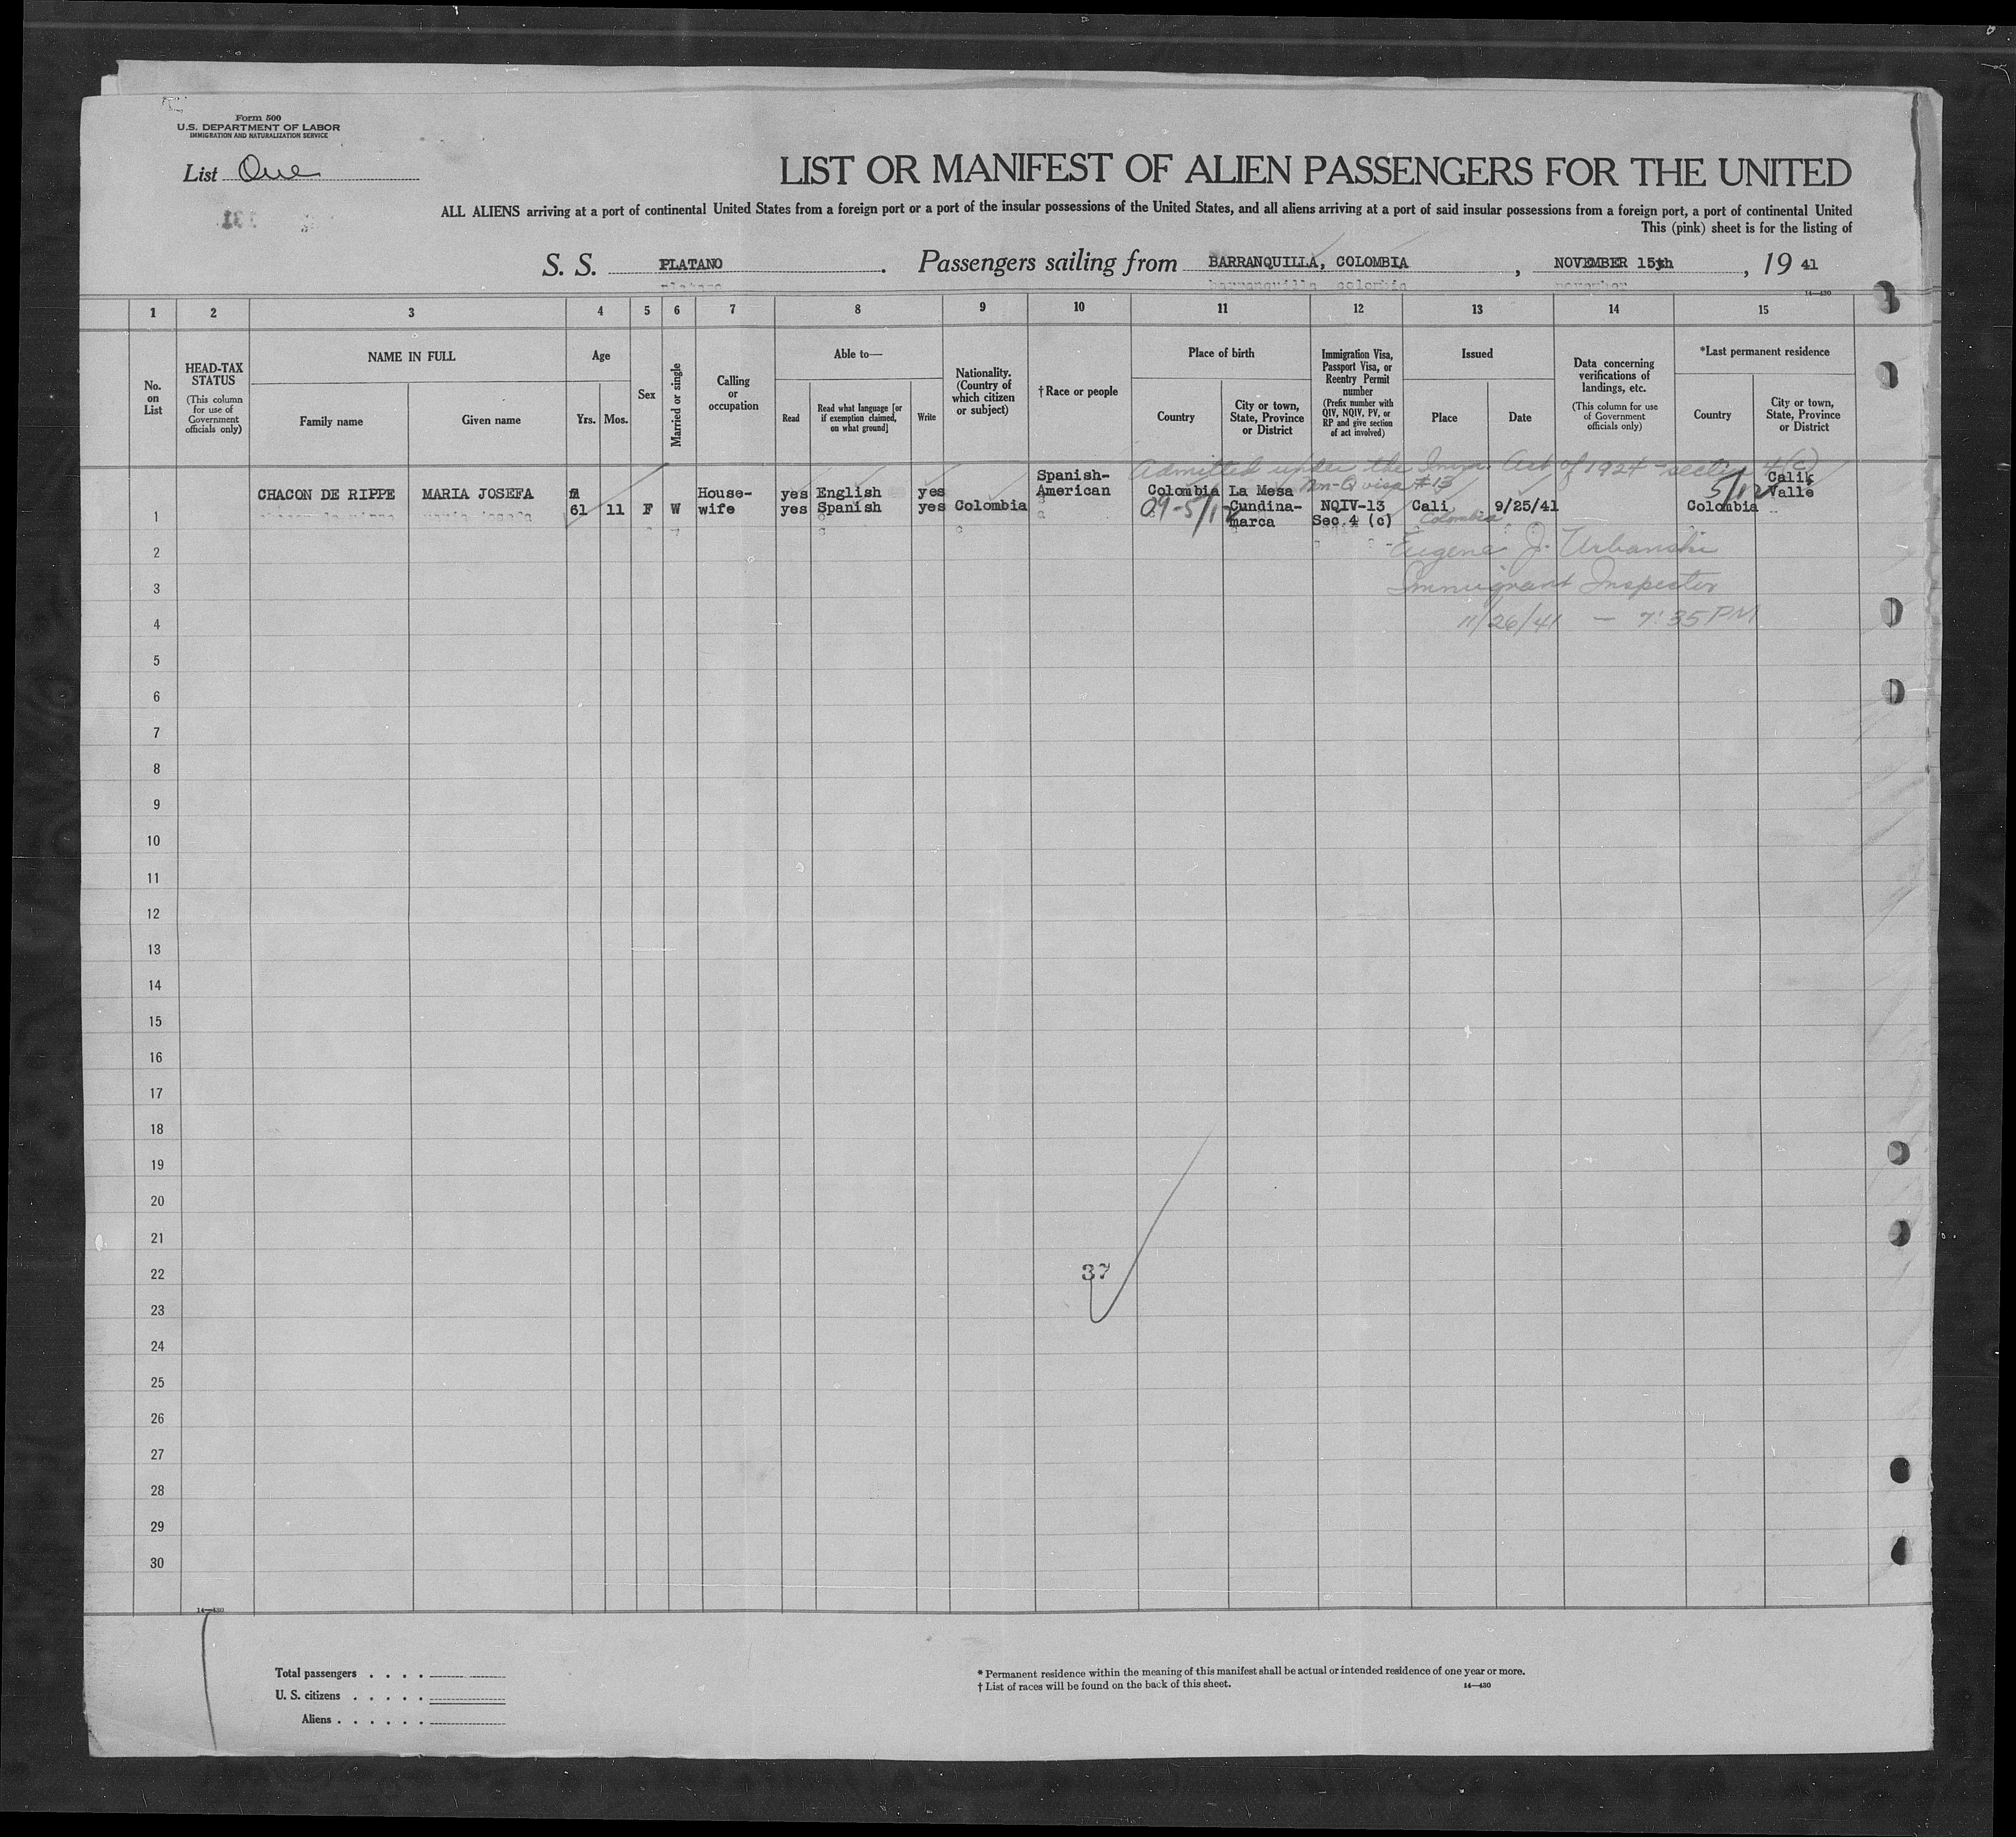 Form 500
U.S. DEPARTMENT OF LABOR
IMMIGRATION AND NATURALIZATION SERVICE
List One
LIST OR MANIFEST OF ALIEN PASSENGERS FOR THE UNITED
ALL ALIENS arriving at a port of continental United States from a foreign port or a port of the insular possessions of the United States, and all aliens arriving at a port of said insular possessions from a foreign port, a port of continental United
This (pink) sheet is for the listing of
S. S. PLATANO. Passengers sailing from BARRANQUILLA, COLOMBIA, NOVEMBER 15th, 19 41
14—430
1 2 3 4 5 6 7 8 9 10 11 12 13 14 15
No. on List
HEAD-TAX STATUS
(This column for use of Government officials only)
NAME IN FULL
Family name
Given name
Age
Yrs. Mos.
Sex
Married or single
Calling or occupation
Able to—
Read
Read what language [or if exemption claimed, on what ground]
Write
Nationality. (Country of which citizen or subject)
† Race or people
Place of birth
Country
City or town, State, Province or District
Immigration Visa, Passport Visa, or Reentry Permit number
(Prefix number with QIV, NQIV, PV, or RP and give section of act involved)
Issued
Place
Date
Data concerning verifications of landings, etc.
(This column for use of Government officials only)
*Last permanent residence
Country
City or town, State, Province or District
Admitted under the Imm. Act of 1924 - section 4(c)
Non-Q visa #13
1 CHACON DE RIPPE MARIA JOSEFA 61 11 F W House-wife yes English yes yes Spanish yes Colombia Spanish-American Colombia La Mesa Cundina-marca NQIV-13 Sec.4 (c) Cali Colombia 9/25/41 Colombia Cali Valle
5/12
Eugene J. Urbanski
Immigrant Inspector
11/26/41 — 7:35 PM
2
3
4
5
6
7
8
9
10
11
12
13
14
15
16
17
18
19
20
21
22
37
23
24
25
26
27
28
29
30
14—430
Total passengers . . . .
U. S. citizens . . . . .
Aliens . . . . . .
* Permanent residence within the meaning of this manifest shall be actual or intended residence of one year or more.
† List of races will be found on the back of this sheet.
14—430